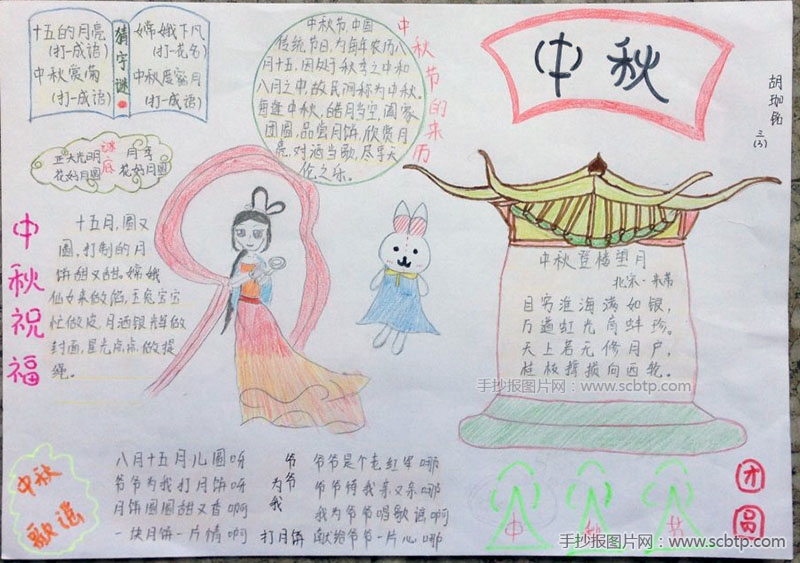 中秋
胡珈铭
三(3)
十五的月亮
(打一成语)
中秋赏菊
(打一成语)
猜字谜
嫦娥下凡
(打一花名)
中秋度蜜月
(打一成语)
正大光明
花好月圆
谜底
月季
花好月圆
中秋节的来历
中秋节,中国
传统节日,为每年农历八
月十五,因处于秋季之中和
八月之中,故民间称为中秋,
每逢中秋,皓月当空,阖家
团圆,品尝月饼,欣赏月
亮,对酒当歌,尽享天
伦之乐。
中秋祝福
十五月,圆又
圆,打制的月
饼甜又甜,嫦娥
仙女来做馅,玉兔
忙做皮,月洒银辉做
封面,星光点点做提
绳。
中秋登楼望月
北宋·米芾
目穷淮海满如银,
万道虹光育蚌珍。
天上若无修月户,
桂枝撑损向西轮。
手抄报图片网:www.scbtp.com
中秋歌谣
八月十五月儿圆呀
爷爷为我打月饼呀
月饼圆圆甜又香啊
一块月饼一片情啊
爷爷为我打月饼
爷爷是个老红军哪
爷爷待我亲又亲哪
我为爷爷唱歌谣啊
献给爷爷一片心哪
中秋节
团圆
手抄报图片网:www.scbtp.com